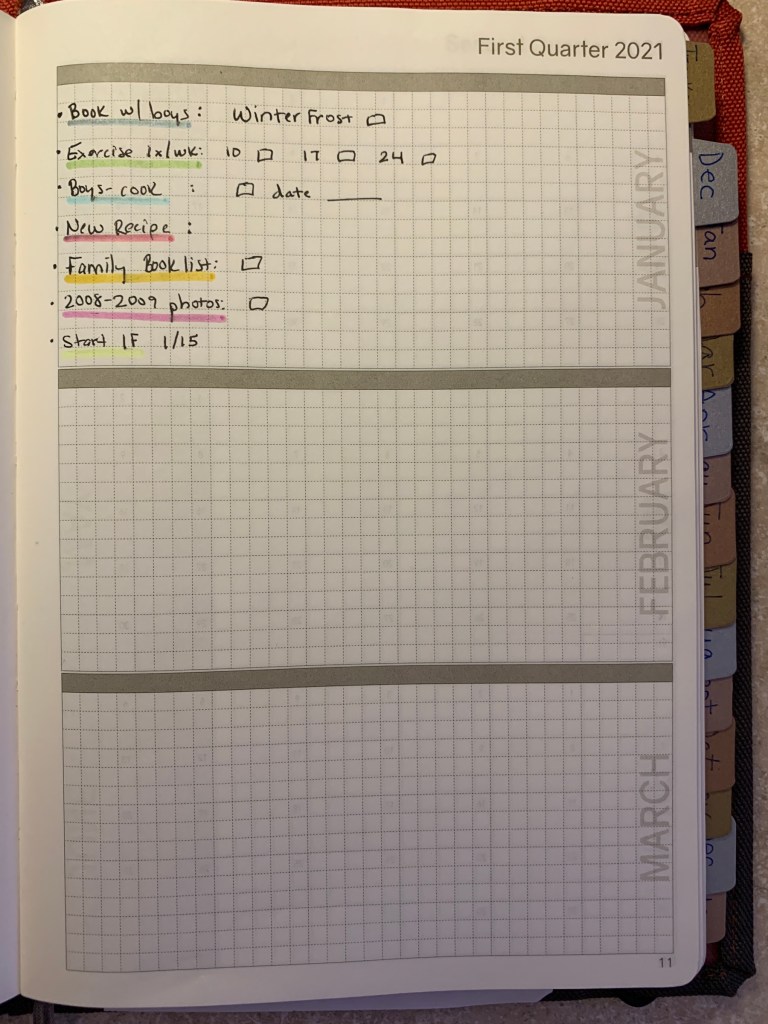 First Quarter 2021
• Book w/ boys: Winter Frost □
• Exercise 1x/wk: 10 □ 17 □ 24 □
• Boys-cook : □ date ____
• New Recipe :
• Family Book list: □
• 2008-2009 photos: □
• Start IF 1/15
JANUARY
FEBRUARY
MARCH
11
Dec
Jan